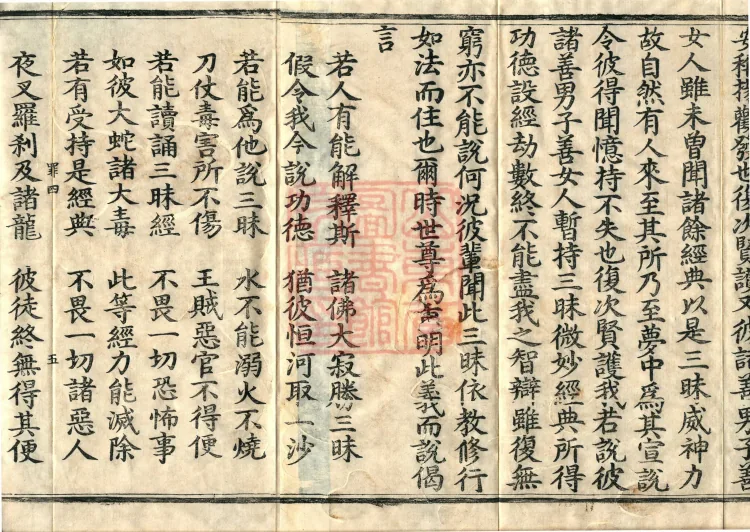 也復次賢護又彼諸善男子善
女人雖未曾聞諸餘經典以是三昧威神力
故自然有人來至其所乃至夢中爲其宣說
令彼得聞憶持不失也復次賢護我若說彼
諸善男子善女人暫持三昧微妙經典所得
功德設經劫數終不能盡我之智辯雖復無
窮亦不能說何況彼輩聞此三昧依教修行
如法而住也爾時世尊爲重明此義而說偈
言
若人有能解釋斯 諸佛大寂勝三昧
假令我今說功德 猶彼恒河取一沙
若能爲他說三昧 水不能溺火不燒
刀仗毒害所不傷 王賊惡官不得便
若能讀誦三昧經 不畏一切恐怖事
如彼大蛇諸大毒 此等經力能滅除
若有受持是經典 不畏一切諸惡人
罪四 五
夜叉羅刹及諸龍 彼徒終無得其便